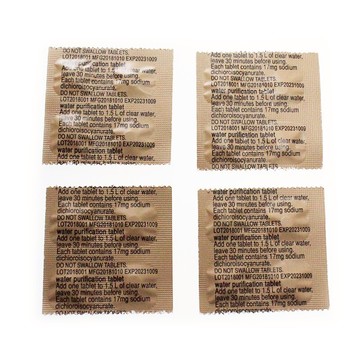 DO NOT SWALLOW TABLETS.
LOT2018001 MFG20181010 EXP20231009
water purification tablet
Add one tablet to 1.5 L of clear water,
leave 30 minutes before using.
Each tablet contains 17mg sodium
dichloroisocyanurate.
DO NOT SWALLOW TABLETS.
LOT2018001 MFG20181010 EXP20231009
water purification tablet
Add one tablet to 1.5 L of clear water,
leave 30 minutes before using.
Each tablet contains 17mg sodium
dichloroisocyanurate.
water purification tablet
Add one tablet to 1.5 L of clear water,
leave 30 minutes before using.
Each tablet contains 17mg sodium
dichloroisocyanurate.
DO NOT SWALLOW TABLETS.
LOT2018001 MFG20181010 EXP20231009
water purification tablet
Add one tablet to 1.5 L of clear water,
leave 30 minutes before using.
Each tablet contains 17mg sodium
dichloroisocyanurate.
DO NOT SWALLOW TABLETS.
leave 30 minutes before using.
Each tablet contains 17mg sodium
dichloroisocyanurate.
DO NOT SWALLOW TABLETS.
LOT2018001 MFG20181010 EXP20231009
water purification tablet
Add one tablet to 1.5 L of clear water,
leave 30 minutes before using.
Each tablet contains 17mg sodium
dichloroisocyanurate.
DO NOT SWALLOW TABLETS.
LOT2018001 MFG20181010 EXP20231009
water purification tablet
Add one tablet to 1.5 L of clear water,
leave 30 minutes before using.
Each tablet contains 17mg sodium
water purification tablet
Add one tablet to 1.5 L of clear water,
leave 30 minutes before using.
Each tablet contains 17mg sodium
dichloroisocyanurate.
DO NOT SWALLOW TABLETS.
LOT2018001 MFG20181010 EXP20231009
water purification tablet
Add one tablet to 1.5 L of clear water,
leave 30 minutes before using.
Each tablet contains 17mg sodium
dichloroisocyanurate.